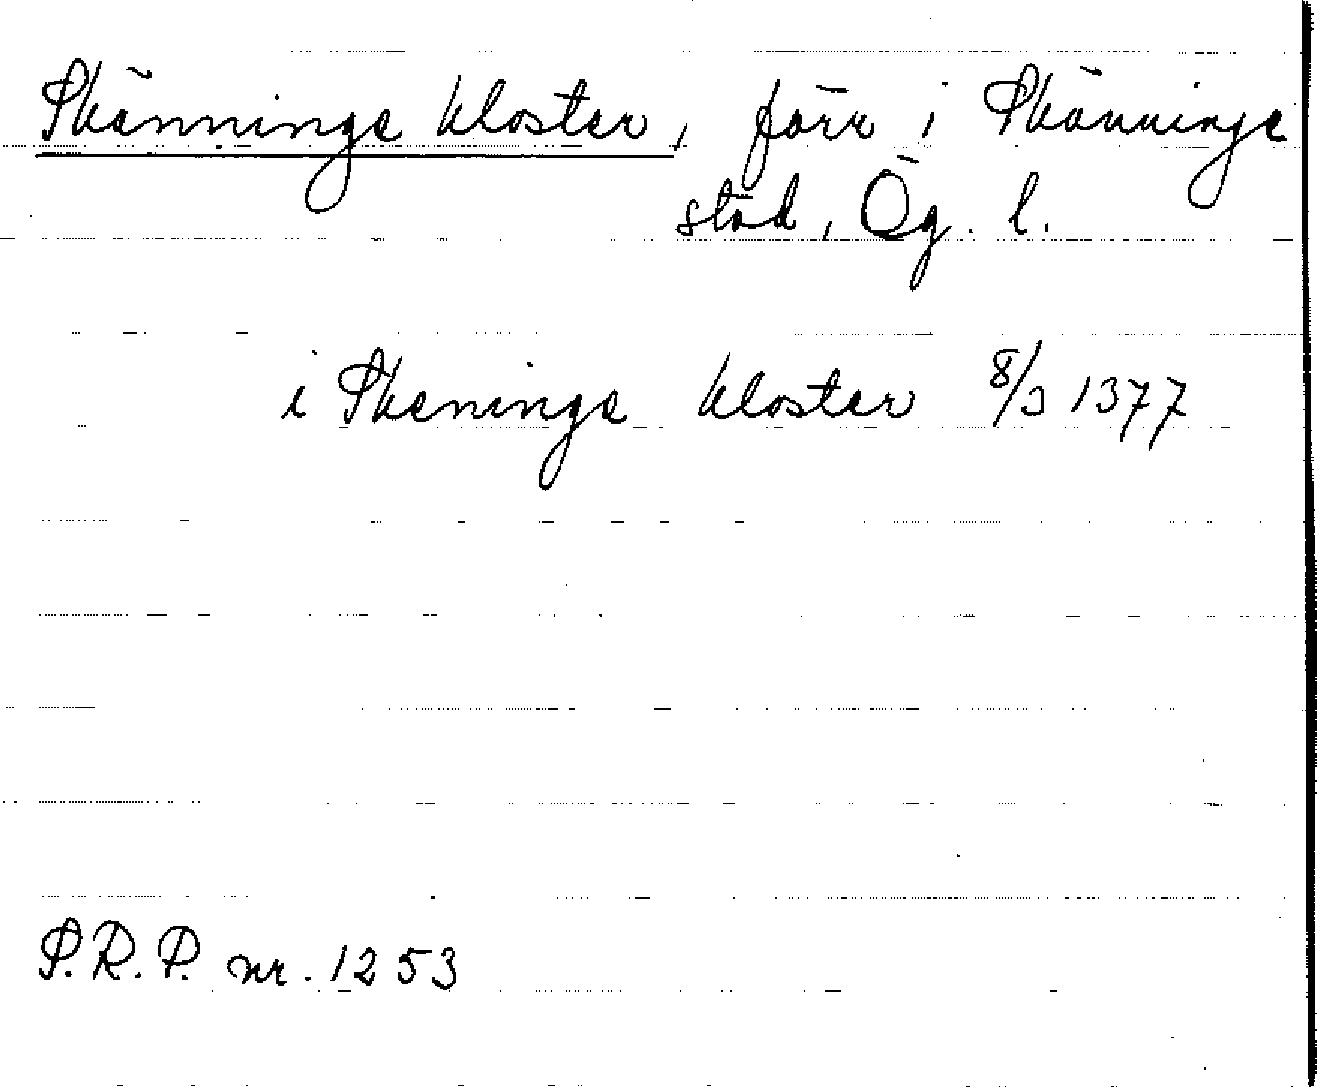 Skänninge kloster, förr i Skänninge
stad, Ög. l.
i Skeninge kloster 8/3 1377
S.R.P. nr. 1253